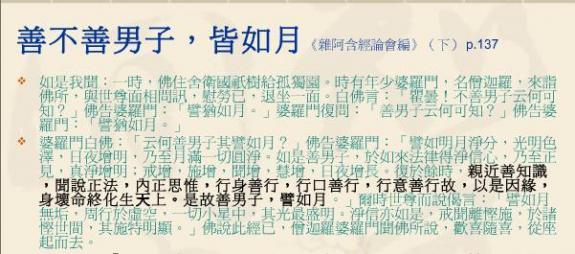 善不善男子，皆如月《雜阿含經論會編》（下）p.137
如是我聞：一時，佛住舍衛國祇樹給孤獨園。時有年少婆羅門，名僧迦羅，來詣
佛所，與世尊面相問訊，慰勞已，退坐一面。白佛言：「瞿曇！不善男子云何可
知？」佛告婆羅門：「譬猶如月。」婆羅門復問：「善男子云何可知？」佛告婆
羅門：「譬猶如月。」
婆羅門白佛：「云何善男子其譬如月？」佛告婆羅門：「譬如明月淨分，光明色
澤，日夜增明，乃至月滿一切圓淨。如是善男子，於如來法律得淨信心，乃至正
見，真淨增明；戒增，施增，聞增，慧增，日夜增長。復於餘時，親近善知識
，聞說正法，內正思惟，行身善行，行口善行，行意善行故，以是因緣，
身壞命終化生天上。是故善男子，譬如月。」爾時世尊而說偈言：「譬如月
無垢，周行於虛空，一切小星中，其光最盛明。淨信亦如是，戒聞離慳施，於諸
慳世間，其施特明顯。」佛說此經已，僧迦羅婆羅門聞佛所說，歡喜隨喜，從座
起而去。